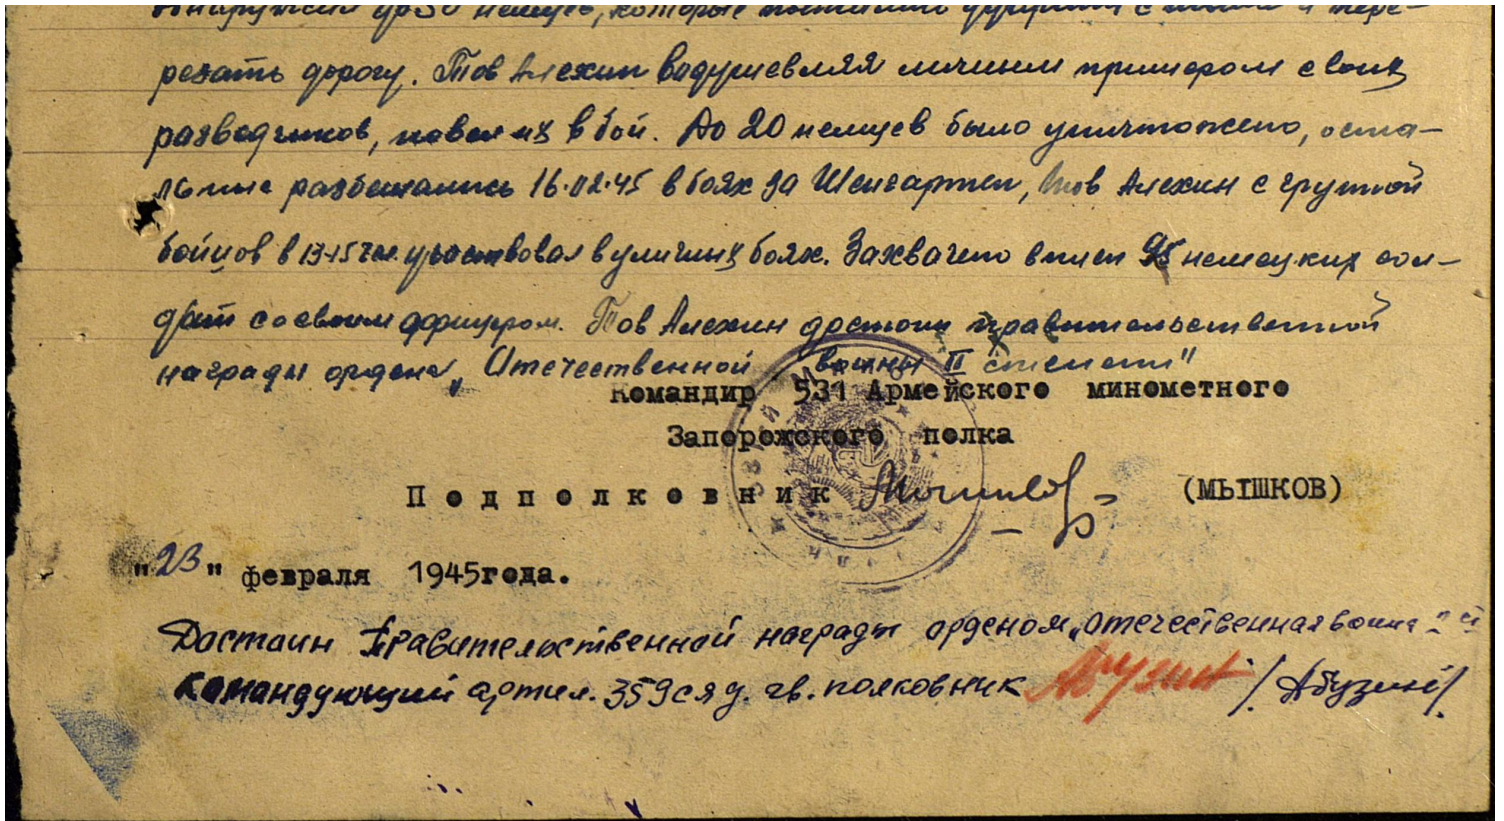 до 30 немцев, которые пытались
резать дорогу. Тов Алехин вадушевляя личным примером своих
разведчиков, повел их в бой. До 20 немцев было уничтожено, оста-
льные разбежались 16.02.45 в боях за Шенгартен, Тов Алехин с группой
бойцов в 13-15 чел. участвовал в уличных боях. Захвачено в плен 95 немецких сол-
дат со своим офицером. Тов Алехин достоин правительственной
награды ордена „Отечественной войны II степени"
Командир 531 Армейского минометного
Запорожского полка
Подполковник (МЫШКОВ)
"23" февраля 1945года.
Достоин Правительственной награды орденом „Отечественная война"
Командующий артил. 359 сд гв. полковник Абузин /Абузин/.